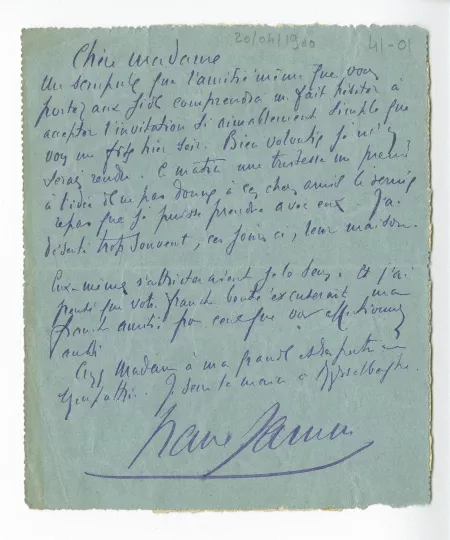 20/04/1900
41-01
Chère Madame
Un scrupule que l'amitié même que vous
portez aux Gide comprendra me fait hésiter à
accepter l'invitation si aimablement simple que
vous me fîtes hier soir. Bien volontiers je m'y
serais rendu. Ce matin une tristesse me prend
à l'idée de ne pas donner à ces chers amis le dernier
repas que je puisse prendre avec eux. J'ai
déserté trop souvent, ces jours ci, leur maison.
Eux-mêmes s'attristeraient je le sens. Et j'ai
pensé que votre franche bonté excuserait ma
franche amitié pour ceux que vous affectionnez
aussi
Madame à ma grande et respectueuse
sympathie. Je serre la main à Rysselberghe.
Francis Jammes